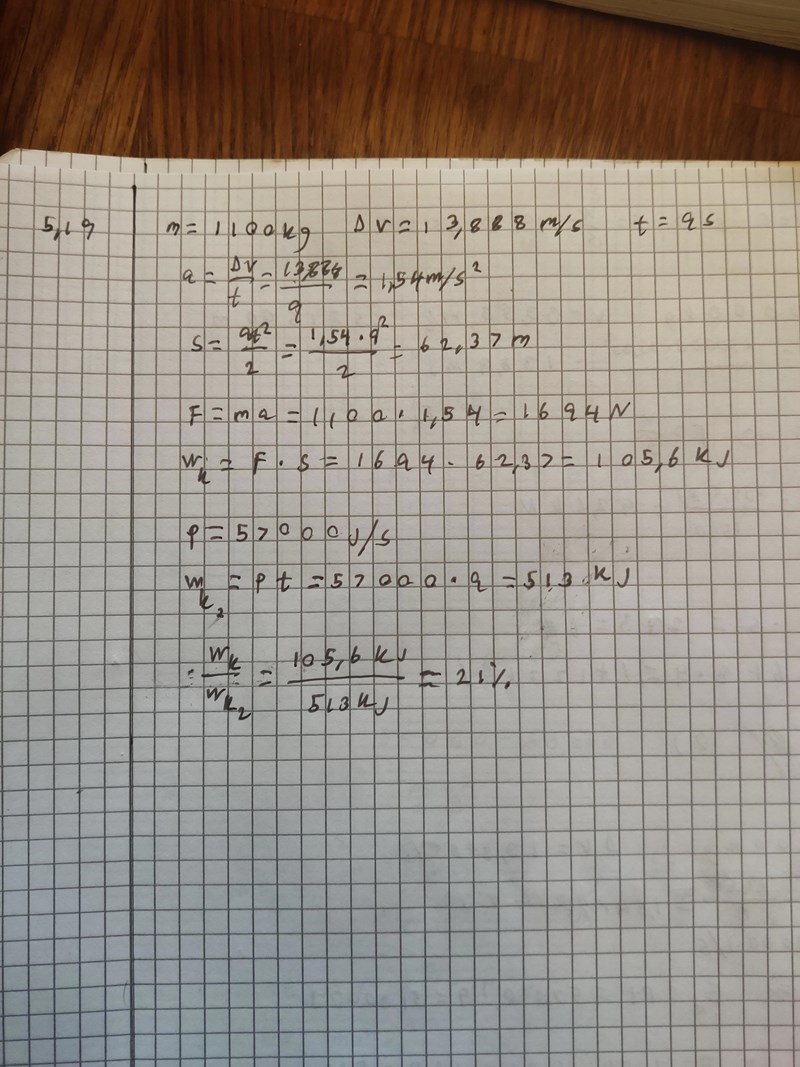 5,19 m = 1100kg Δv = 13,888 m/s t = 9s
a = Δv/t = 13,888/9 = 1,54m/s²
s = at²/2 = 1,54·9²/2 = 62,37m
F = ma = 1100·1,54 = 1694N
Wk = F·s = 1694·62,37 = 105,6 kJ
P = 57000J/s
Wk2 = Pt = 57000·9 = 513 kJ
Wk/Wk2 = 105,6 kJ/513kJ = 21%